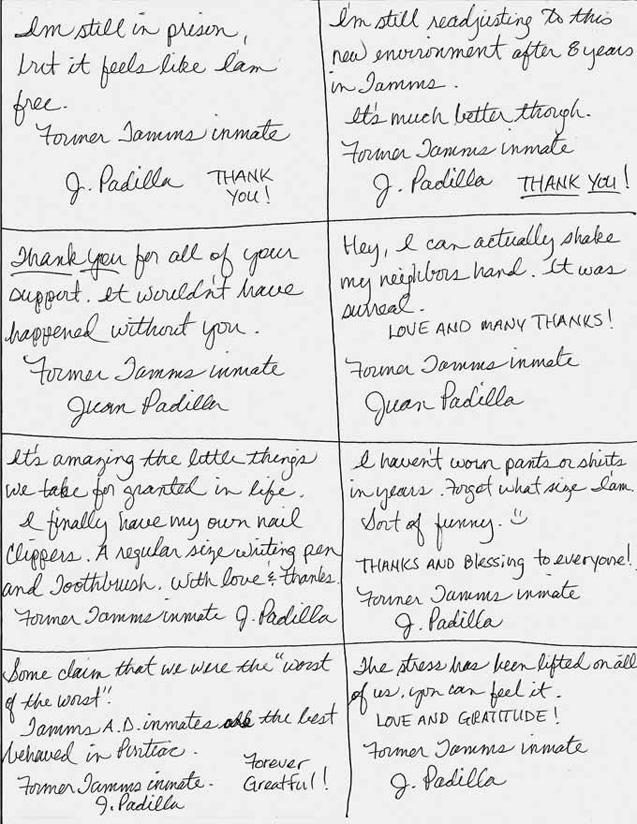 I'm still in prison,
but it feels like I am
free.
Former Tamms inmate
J. Padilla THANK
YOU!
I'm still readjusting to this
new environment after 8 years
in Tamms.
It's much better though.
Former Tamms inmate
J. Padilla THANK YOU!
Thank you for all of your
support. It wouldn't have
happened without you.
Former Tamms inmate
Juan Padilla
Hey, I can actually shake
my neighbors hand. It was
surreal.
LOVE AND MANY THANKS!
Former Tamms inmate
Juan Padilla
It's amazing the little things
we take for granted in life.
I finally have my own nail
clippers. A regular size writing pen
and Toothbrush. With love & thanks.
Former Tamms inmate J. Padilla
I haven't worn pants or shirts
in years. Forgot what size I am.
Sort of funny.
THANKS AND Blessing to everyone!
Former Tamms inmate
J. Padilla
Some claim that we were the "worst
of the worst".
Tamms A.D. inmates the best
behaved in Pontiac.
Forever
Former Tamms inmate. Greatful!
J. Padilla
The stress has been lifted on all
of us, you can feel it.
LOVE AND GRATITUDE!
Former Tamms inmate
J. Padilla